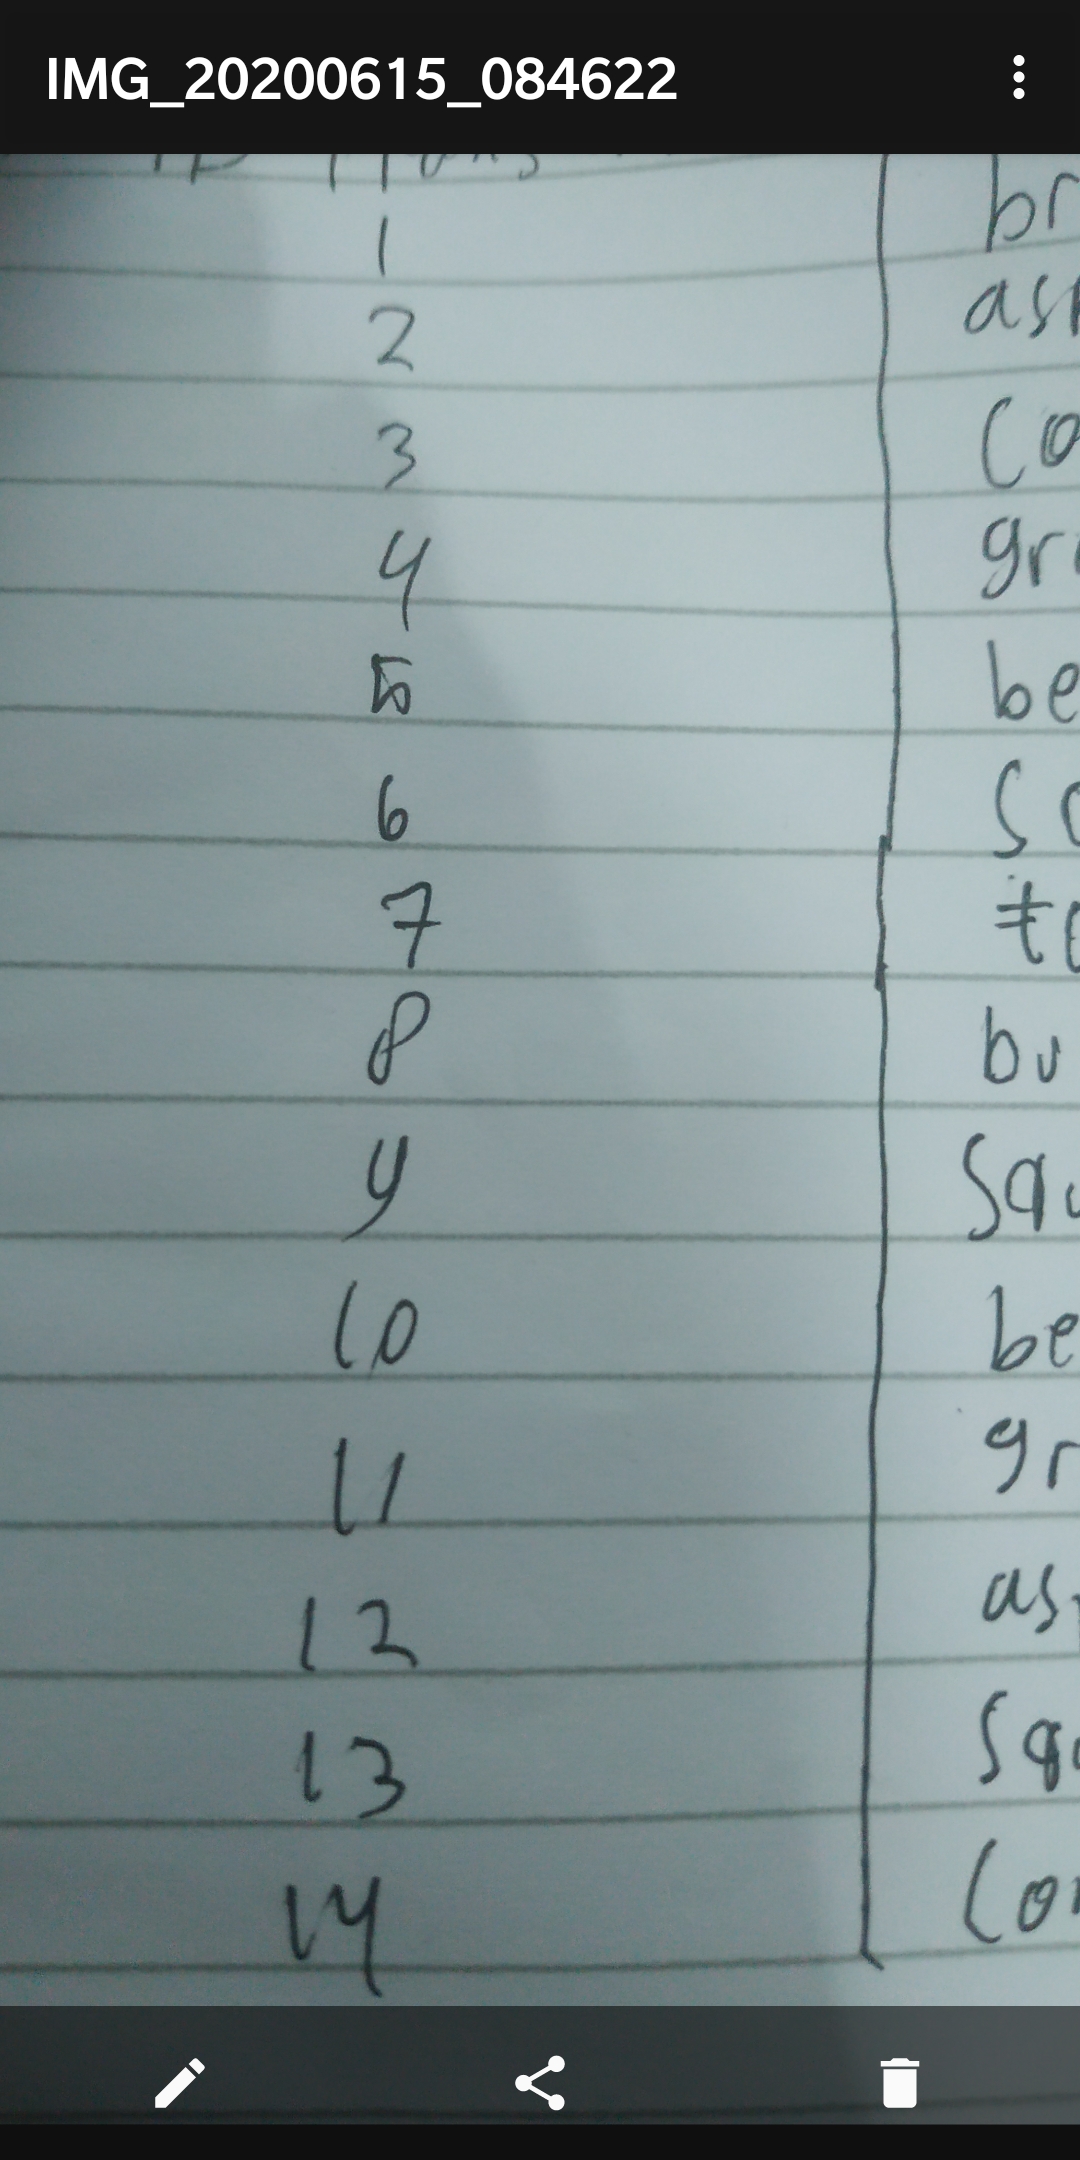 IMG_20200615_084622
1 br
2 as
3 co
4 gr
5 be
6 so
7 to
8 bu
9 squ
10 be
11 gr
12 as
13 sq
14 cor